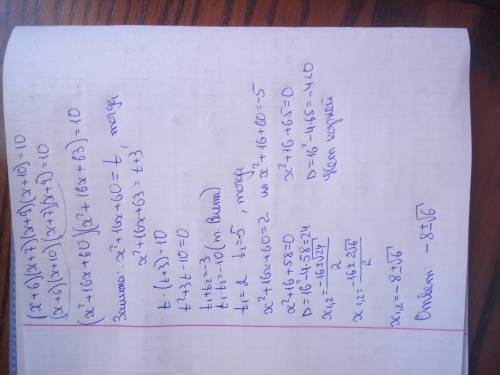 (x+6)(x+7)(x+9)(x+10)=10
(x+6)(x+10)(x+7)(x+9)=10
(x²+16x+60)(x²+16x+63)=10
Замена: x²+16x+60=t, тогда
x²+16x+63=t+3
t·(t+3)=10
t²+3t-10=0
t₁+t₂=-3
t₁·t₂=-10 (т. Виета)
t₁=2 t₂=5, тогда
x²+16x+60=2 или x²+16+60=-5
x²+16+58=0 x²+16+65=0
D=16²-4·58=24 D=16²-4·65=-4<0
x₁,₂=-16±√24/2 Нет корней
x₁,₂=-16±2√6/2
x₁,₂=-8±√6
Ответ -8±√6